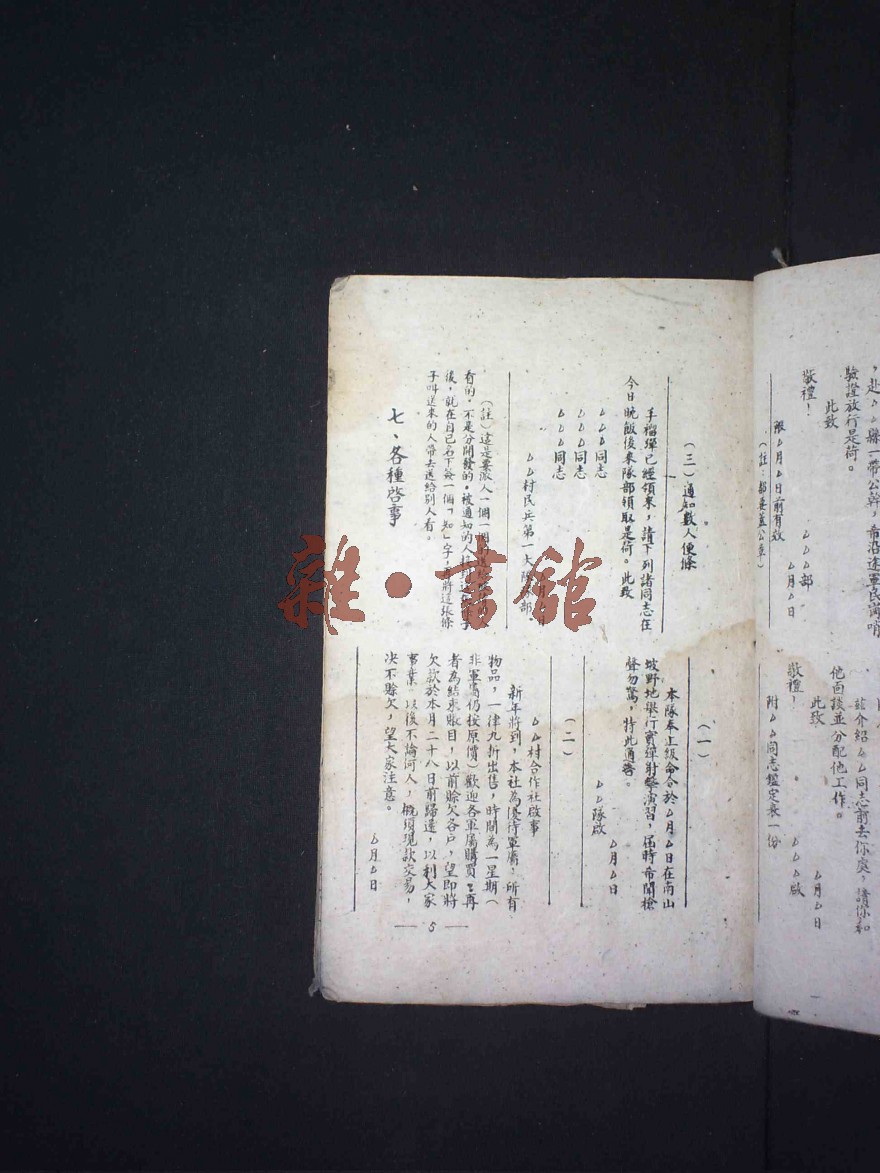 ，赴㇄㇄縣一帶公幹，希沿途軍民崗哨
驗證放行是荷。
此致
敬禮！
㇄㇄㇄部
㇄月㇄日
限㇄月㇄日前有效
（註：都要蓋公章）
茲介紹㇄㇄同志前去你處，請你和
他面談並分配他工作。
此致
敬禮！
㇄㇄㇄啟
㇄月㇄日
附㇄㇄同志鑑定表一份
（三）通知數人便條
手榴彈已經領來，請下列諸同志在
今日晚飯後來隊部領取是荷。此致
㇄㇄㇄同志
㇄㇄㇄同志
㇄㇄㇄同志
㇄㇄村民兵第一大隊部
月
（註）這是票派人一個一個
看的，不是分開發的。被通知的人
後，就在自己名下簽一個「知」字，將這張條
子叫送來的人帶去送給別人看。
七、各種啓事
（一）
本隊奉上級命令於㇄月㇄日在南山
坡野地舉行實彈射擊演習，屆時希聞槍
聲勿驚，特此通告。
㇄㇄隊啟
㇄月㇄日
（二）
㇄㇄村合作社啟事
新年將到，本社為優待軍屬，所有
物品，一律九折出售，時間為一星期（
非軍屬仍按原價）歡迎各軍屬購買；再
者為結束賬目，以前賒欠各戶，望即將
欠款於本月二十八日前歸還，以利大家
事業，以後不論何人，概須現款交易，
決不賒欠，望大家注意。
㇄月㇄日
— 5 —
雜·書館